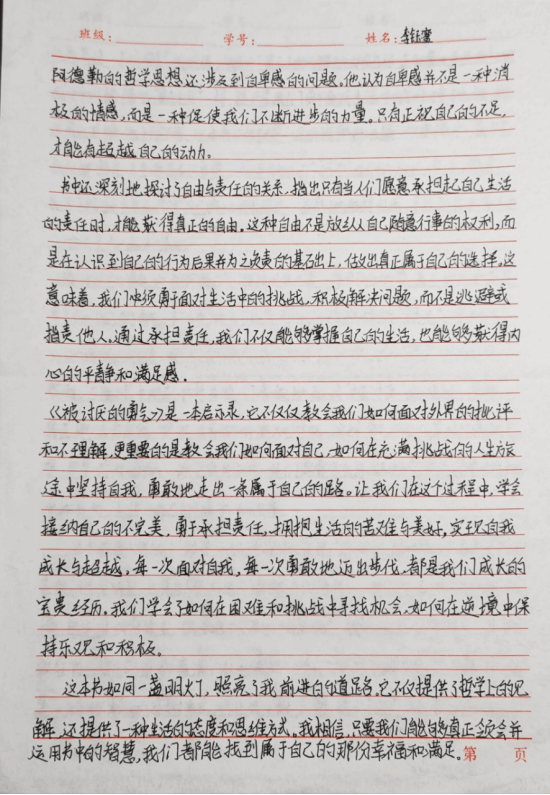 班级： 学号： 姓名：
阿德勒的哲学思想还涉及到自卑感的问题。他认为自卑感并不是一种消
极的情感，而是一种促使我们不断进步的力量。只有正视自己的不足，
才能有超越自己的动力。
书中还深刻地探讨了自由与责任的关系，指出只有当人们愿意承担起自己生活
的责任时，才能获得真正的自由。这种自由不是放纵自己随意行事的权利，而
是在认识到自己的行为后果并为之负责的基础上，做出真正属于自己的选择。这
意味着，我们必须勇于面对生活中的挑战，积极解决问题，而不是逃避或
指责他人。通过承担责任，我们不仅能够掌握自己的生活，也能够获得内
心的平静和满足感。
《被讨厌的勇气》是一本启示录，它不仅仅教会我们如何面对外界的批评
和不理解，更重要的是教会我们如何面对自己，如何在充满挑战的人生旅
途中坚持自我，勇敢地走出一条属于自己的路。让我们在这个过程中，学会
接纳自己的不完美，勇于承担责任，拥抱生活的苦难与美好，实现自我
成长与超越，每一次面对自我，每一次勇敢地迈出步伐，都是我们成长的
宝贵经历。我们学会了如何在困难和挑战中寻找机会，如何在逆境中保
持乐观和积极。
这本书如同一盏明灯，照亮了我前进的道路。它不仅提供了哲学上的见
解，还提供了一种生活的态度和思维方式。我相信，只要我们能够真正领会并
运用书中的智慧，我们都能找到属于自己的那份幸福和满足。
第 页